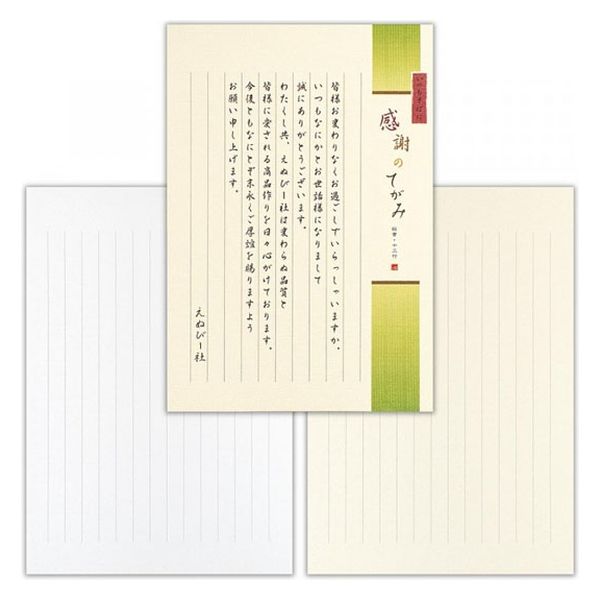 いつもそばに
感謝の
てがみ
縦書・十三行
皆様お変わりなくお過ごしでいらっしゃいますか。
いつもなにかとお世話様になりまして
誠にありがとうございます。
わたくし共、えぬびー社は変わらぬ品質と
皆様に愛される商品作りを日々心がけております。
今後ともなにとぞ末永くご厚誼を賜りますよう
お願い申し上げます。
えぬびー社